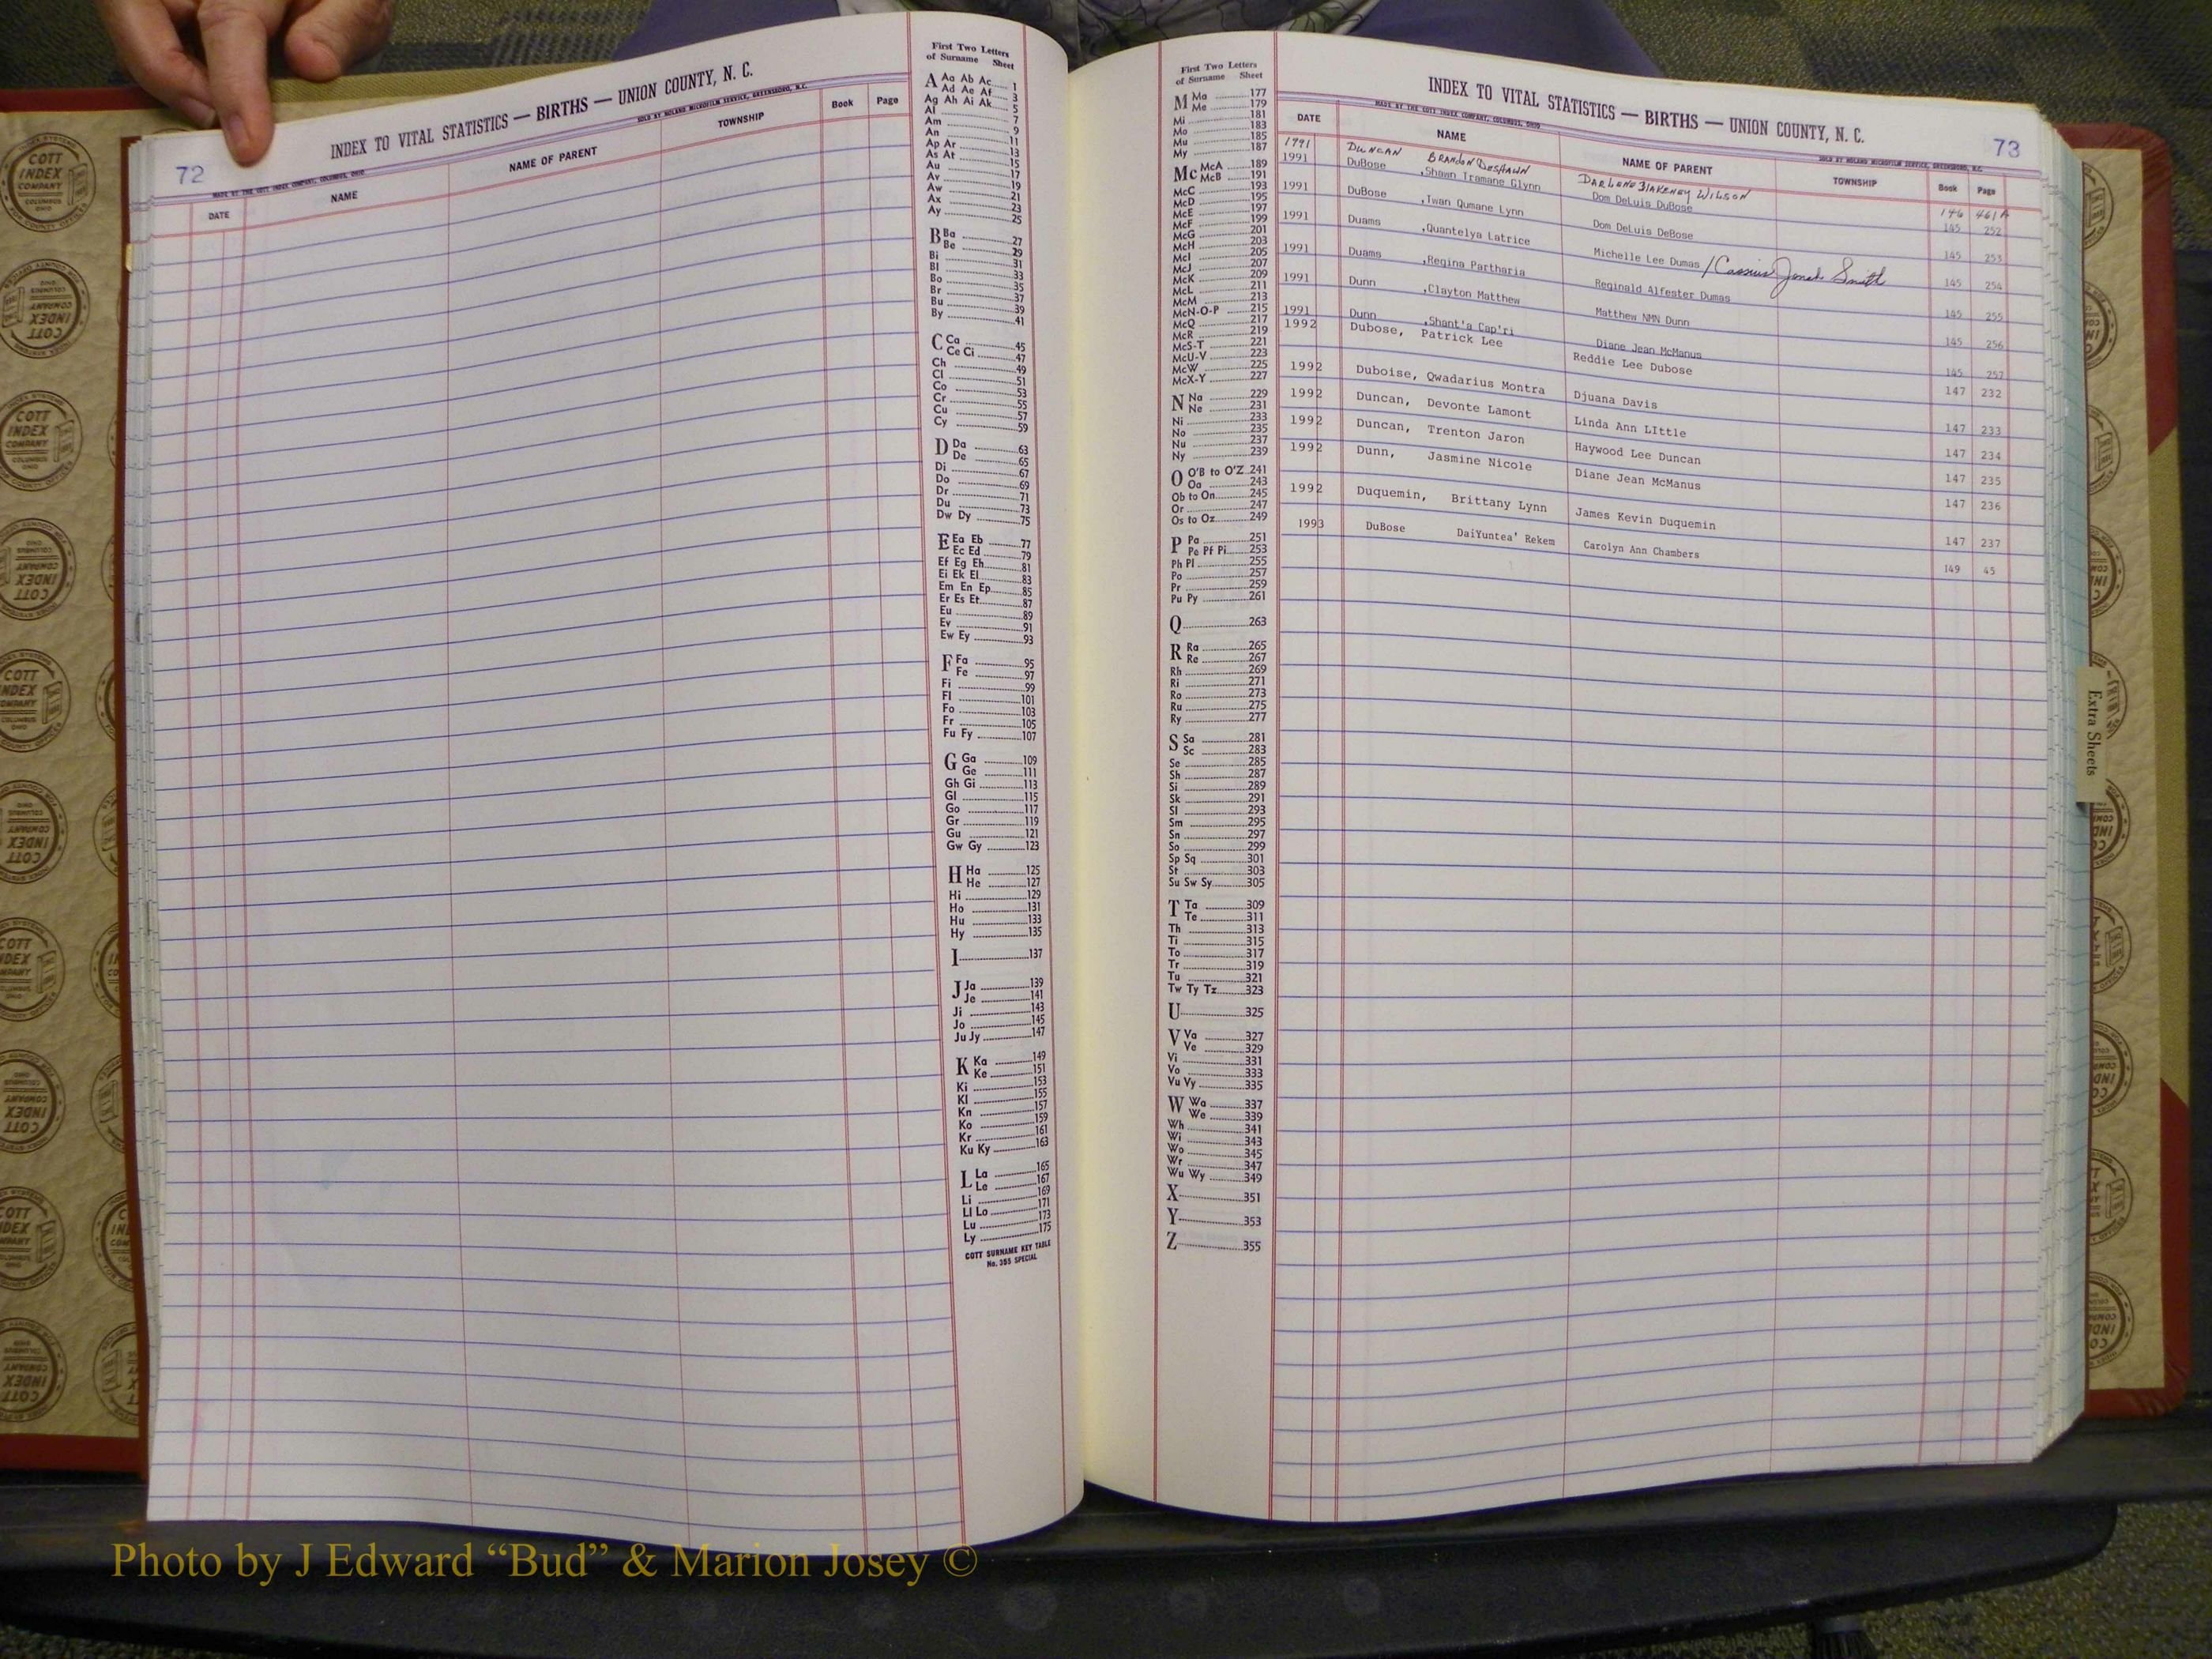 72
INDEX TO VITAL STATISTICS — BIRTHS — UNION COUNTY, N. C.
MADE BY THE COTT INDEX COMPANY, COLUMBUS, OHIO
SOLD BY NOLAND MICROFILM SERVICE, GREENSBORO, N.C.
DATE NAME NAME OF PARENT TOWNSHIP Book Page
First Two Letters
of Surname Sheet
A Aa Ab Ac 1
Ad Ae Af 3
Ag Ah Ai Ak 5
Al 7
Am 9
An 11
Ap Ar 13
As At 15
Au 17
Av 19
Aw 21
Ax 23
Ay 25
B Ba 27
Be 29
Bi 31
Bl 33
Bo 35
Br 37
Bu 39
By 41
C Ca 45
Ce Ci 47
Ch 49
Cl 51
Co 53
Cr 55
Cu 57
Cy 59
D Da 63
De 65
Di 67
Do 69
Dr 71
Du 73
Dw Dy 75
E Ea Eb 77
Ec Ed 79
Ef Eg Eh 81
Ei Ek El 83
Em En Ep 85
Er Es Et 87
Eu 89
Ev 91
Ew Ey 93
F Fa 95
Fe 97
Fi 99
Fl 101
Fo 103
Fr 105
Fu Fy 107
G Ga 109
Ge 111
Gh Gi 113
Gl 115
Go 117
Gr 119
Gu 121
Gw Gy 123
H Ha 125
He 127
Hi 129
Ho 131
Hu 133
Hy 135
I 137
J Ja 139
Je 141
Ji 143
Jo 145
Ju Jy 147
K Ka 149
Ke 151
Ki 153
Kl 155
Kn 157
Ko 159
Kr 161
Ku Ky 163
L La 165
Le 167
Li 169
Ll Lo 171
Lu 173
Ly 175
COTT SURNAME KEY TABLE
No. 355 SPECIAL
First Two Letters
of Surname Sheet
M Ma 177
Me 179
Mi 181
Mo 183
Mu 185
My 187
Mc McA 189
McB 191
McC 193
McD 195
McE 197
McF 199
McG 201
McH 203
McI 205
McJ 207
McK 209
McL 211
McM 213
McN-O-P 215
McQ 217
McR 219
McS-T 221
McU-V 223
McW 225
McX-Y 227
N Na 229
Ne 231
Ni 233
No 235
Nu 237
Ny 239
O O'B to O'Z 241
Oa 243
Ob to On 245
Or 247
Os to Oz 249
P Pa 251
Pe Pf Pi 253
Ph Pl 255
Po 257
Pr 259
Pu Py 261
Q 263
R Ra 265
Re 267
Rh 269
Ri 271
Ro 273
Ru 275
Ry 277
S Sa 281
Sc 283
Se 285
Sh 287
Si 289
Sk 291
Sl 293
Sm 295
Sn 297
So 299
Sp Sq 301
St 303
Su Sw Sy 305
T Ta 309
Te 311
Th 313
Ti 315
To 317
Tr 319
Tu 321
Tw Ty Tz 323
U 325
V Va 327
Ve 329
Vi 331
Vo 333
Vu Vy 335
W Wa 337
We 339
Wh 341
Wi 343
Wo 345
Wr 347
Wu Wy 349
X 351
Y 353
Z 355
73
INDEX TO VITAL STATISTICS — BIRTHS — UNION COUNTY, N. C.
MADE BY THE COTT INDEX COMPANY, COLUMBUS, OHIO
SOLD BY NOLAND MICROFILM SERVICE, GREENSBORO, N.C.
DATE NAME NAME OF PARENT TOWNSHIP Book Page
1991 DUNCAN BRANDON DESHAWN DARLENE BLAKENEY WILSON 146 461A
1991 DuBose ,Shawn Tramane Glynn Dom DeLuis DuBose 145 252
1991 DuBose ,Iwan Qumane Lynn Dom DeLuis DeBose 145 253
1991 Duams ,Quantelya Latrice Michelle Lee Dumas / Cassius Jonah Smith 145 254
1991 Duams ,Regina Partharia Reginald Alfester Dumas 145 255
1991 Dunn ,Clayton Matthew Matthew NMN Dunn 145 256
1991 Dunn ,Shant'a Cap'ri Diane Jean McManus 145 257
1992 Dubose, Patrick Lee Reddie Lee Dubose 147 232
1992 Duboise, Qwadarius Montra Djuana Davis 147 233
1992 Duncan, Devonte Lamont Linda Ann LIttle 147 234
1992 Duncan, Trenton Jaron Haywood Lee Duncan 147 235
1992 Dunn, Jasmine Nicole Diane Jean McManus 147 236
1992 Duquemin, Brittany Lynn James Kevin Duquemin 147 237
1993 DuBose DaiYuntea' Rekem Carolyn Ann Chambers 149 45
Extra Sheets
COTT INDEX COMPANY COLUMBUS OHIO
Photo by J Edward “Bud” & Marion Josey ©